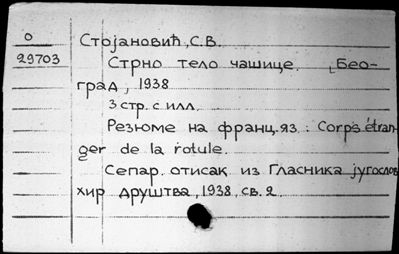 О
29703
Стојановић, С.В.
Стрно тело чашице. [Бео-
град, 1938
3 стр. с илл.
Резюме на франц. яз.: Corps étran-
ger de la rotule.
Сепар. отисак из Гласника југослов
хир друштва, 1938, св. 2.